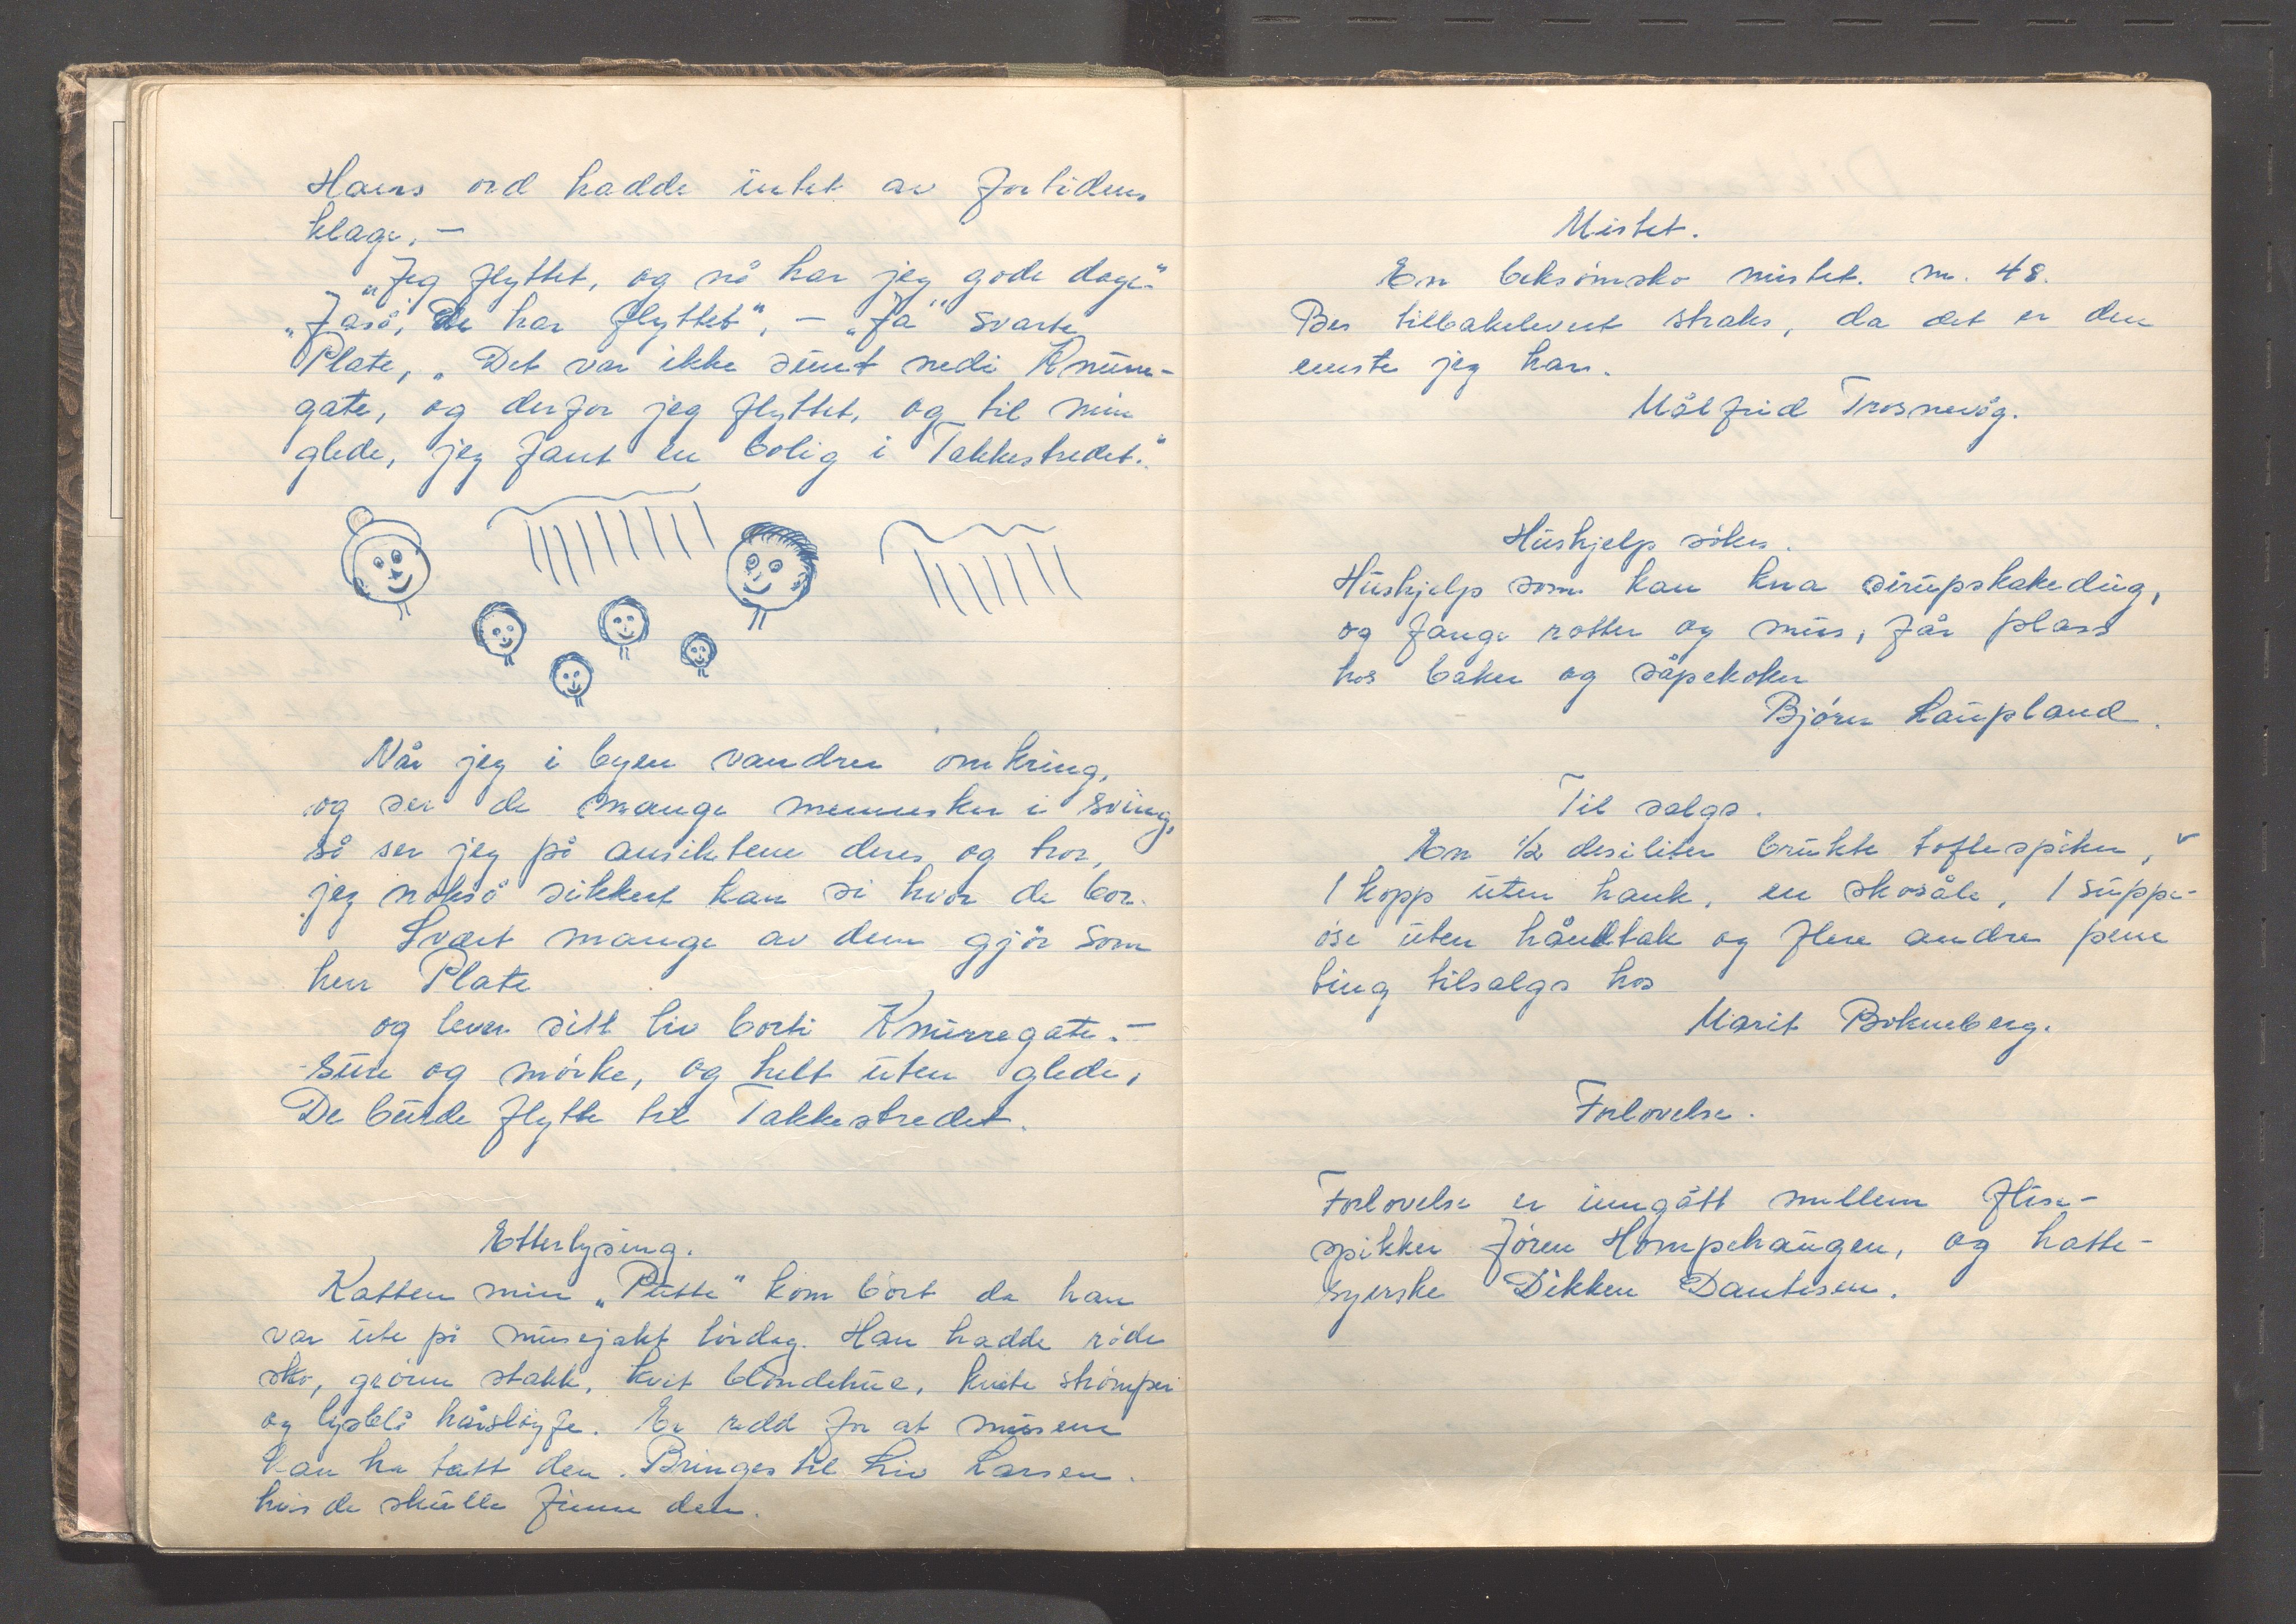 Hans ord hadde intet av fortidens
klage. —
„Jeg flyttet, og nå har jeg gode dage."
„Jaså, De har flyttet", — „Ja" svarte
Plate, „Det var ikke sunt nedi Knurre-
gate, og derfor jeg flyttet, og til min
glede, jeg fant en bolig i Takkestredet."
Når jeg i byen vandrer omkring,
og ser de mange mennesker i sving,
så ser jeg på ansiktene deres og tror,
jeg nokså sikkert kan si hvor de bor.
Svært mange av dem gjör som
herr Plate
og lever sitt liv borti Knurregate. —
Sure og mörke, og helt uten glede,
De burde flytte til Takkestredet.
Etterlysing.
Katten min „Putte" kom bort da han
var ute på musejakt lördag. Han hadde röde
sko, grönn stakk, kvit blondehue, kvite strömper
og lyseblå hårslöyfe. Er redd for at musene
kan ha tatt den. Bringes til Liv Larsen.
hvis de skulle finne den.
Mistet.
En beksömsko mistet. nr. 48.
Bes tilbakelevert straks, da det er den
eneste jeg har.
Målfrid Trosnevåg.
Hushjelp sökes.
Hushjelp som kan kna sirupskakedeig,
og fange rotter og mus, får plass
hos baker og såpekoker
Björn Laupland.
Til salgs.
En 1/2 desiliter brukte toflespiker,
1 kopp uten hank, en skosåle, 1 suppe-
öse uten håndtak og flere andre pene
ting tilsalgs hos
Marit Bokneberg.
Forlovelse.
Forlovelse er inngått mellem flise-
spikker Jören Hompehaugen, og hatte-
syerske Dikken Dantesen.